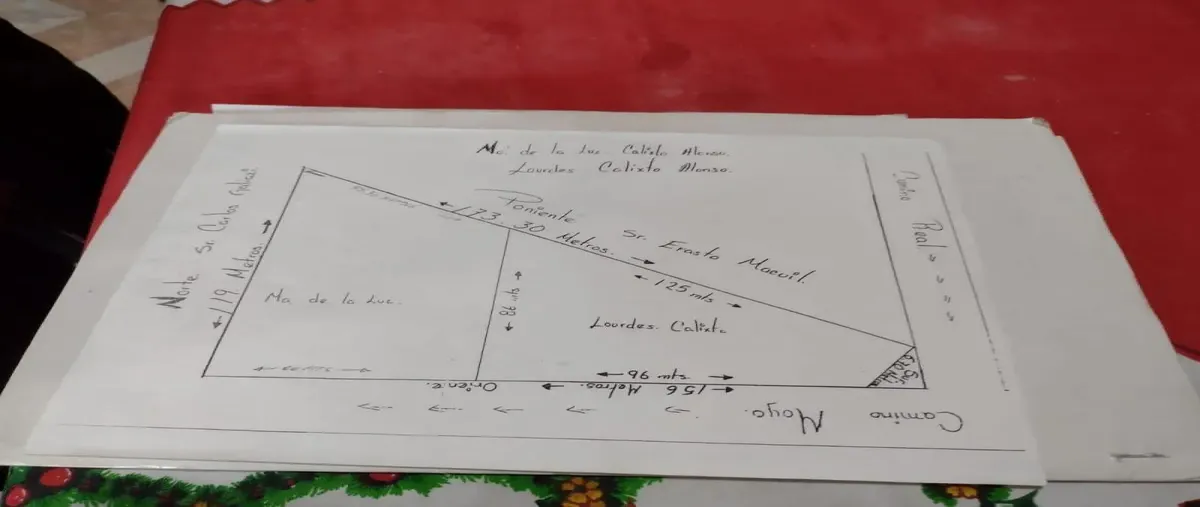 Ma. de la Luz Calixto Alonso.
Lourdes Calixto Alonso.
Camino Real
Norte Sr. Carlos
119 Metros.
Poniente
173.30 Metros.
Sr. Erasto
125 mts
Ma de la Luz.
86 mts
Lourdes. Calixto
96 mts
156 Metros.
Oriente.
Camino Moyo.